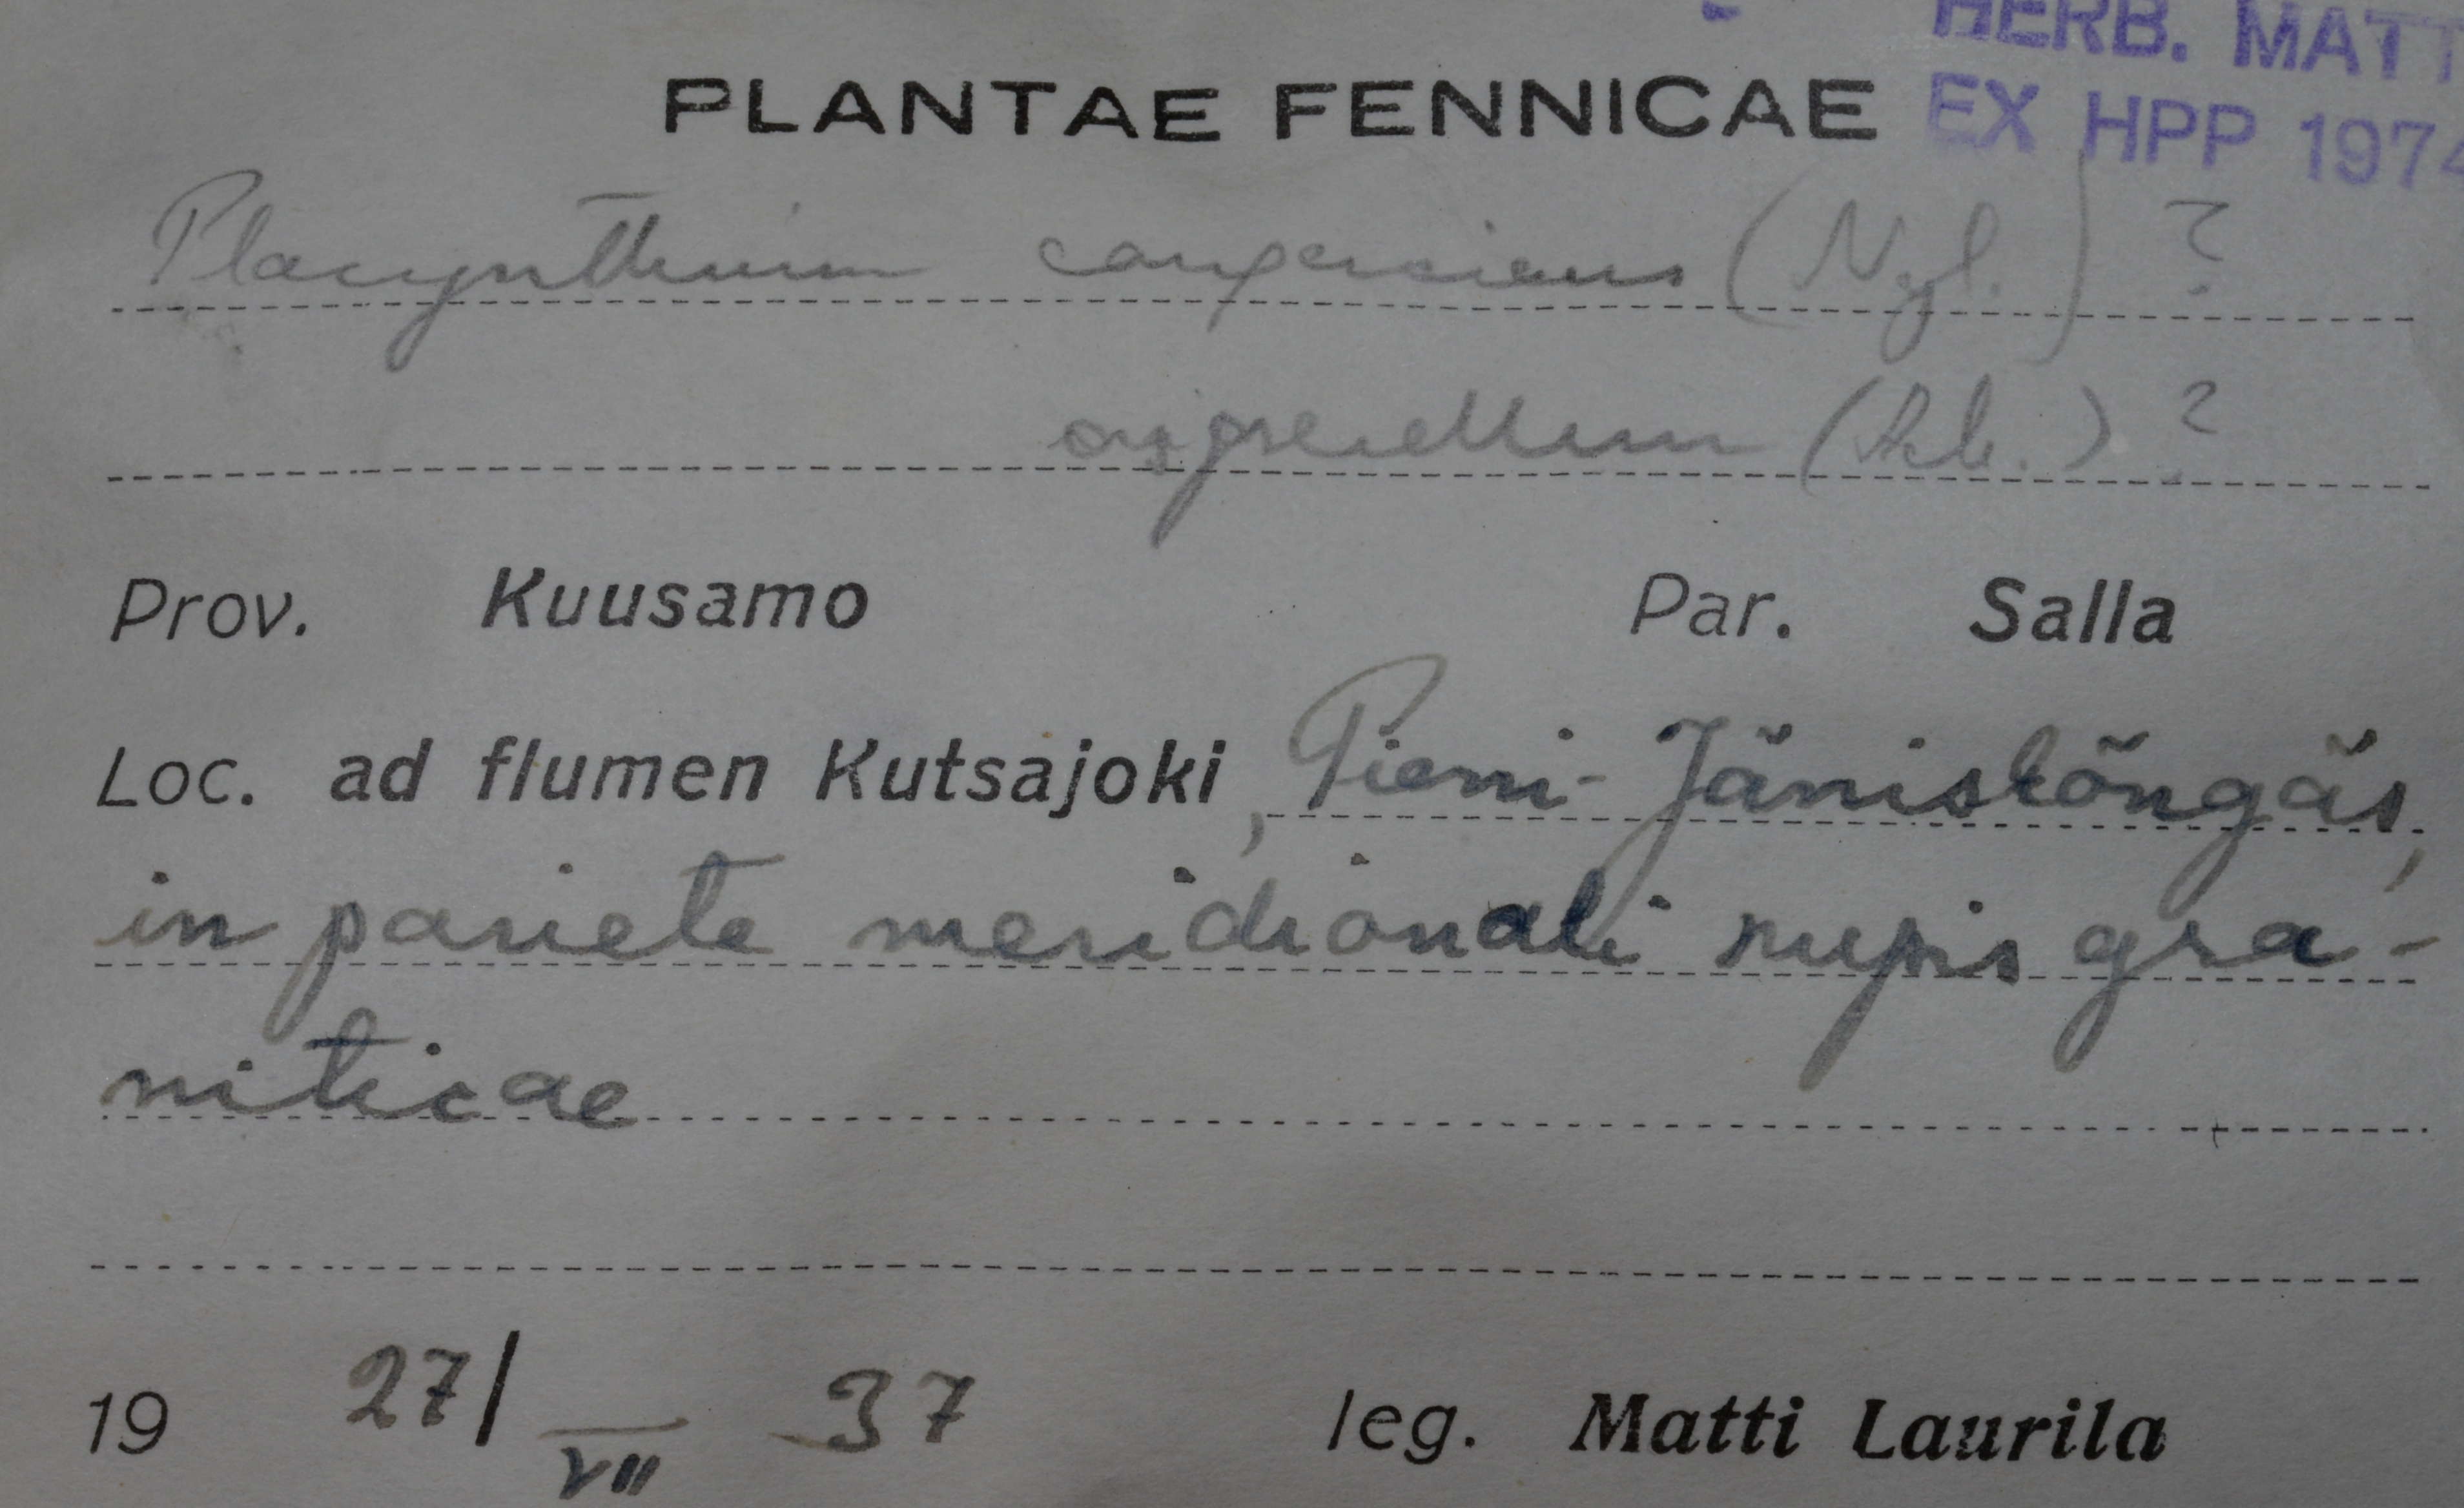 HERB. MATT
PLANTAE FENNICAE EX HPP 1974
Placynthium (Nyl.) ?
?
Prov. Kuusamo Par. Salla
Loc. ad flumen Kutsajoki, Pieni-Jäniskõngäs,
in pariete meridionali rupis gra-
niticae
19 27/VII 37 leg. Matti Laurila